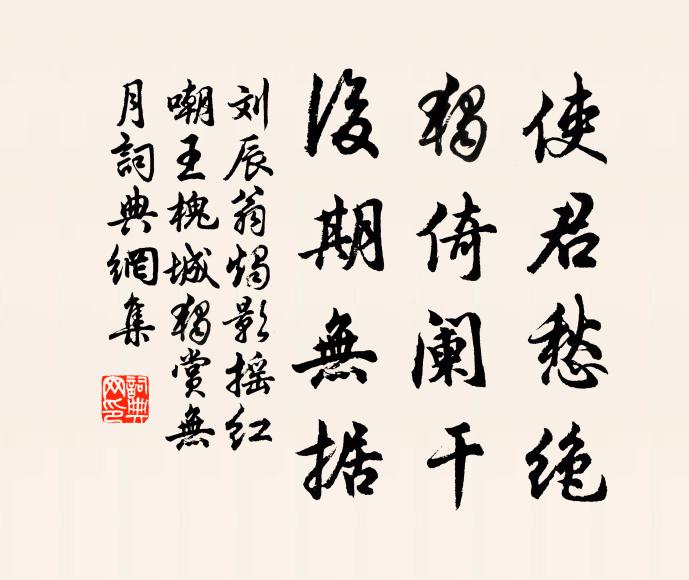 使君愁绝
独倚阑干
後期無据
刘辰翁烛影摇红
嘲王槐城独赏無
月詞典網集
詞典
网印